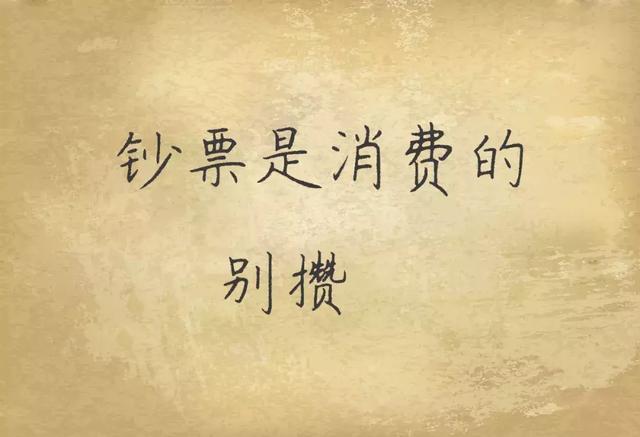 钞票是消费的
别攒